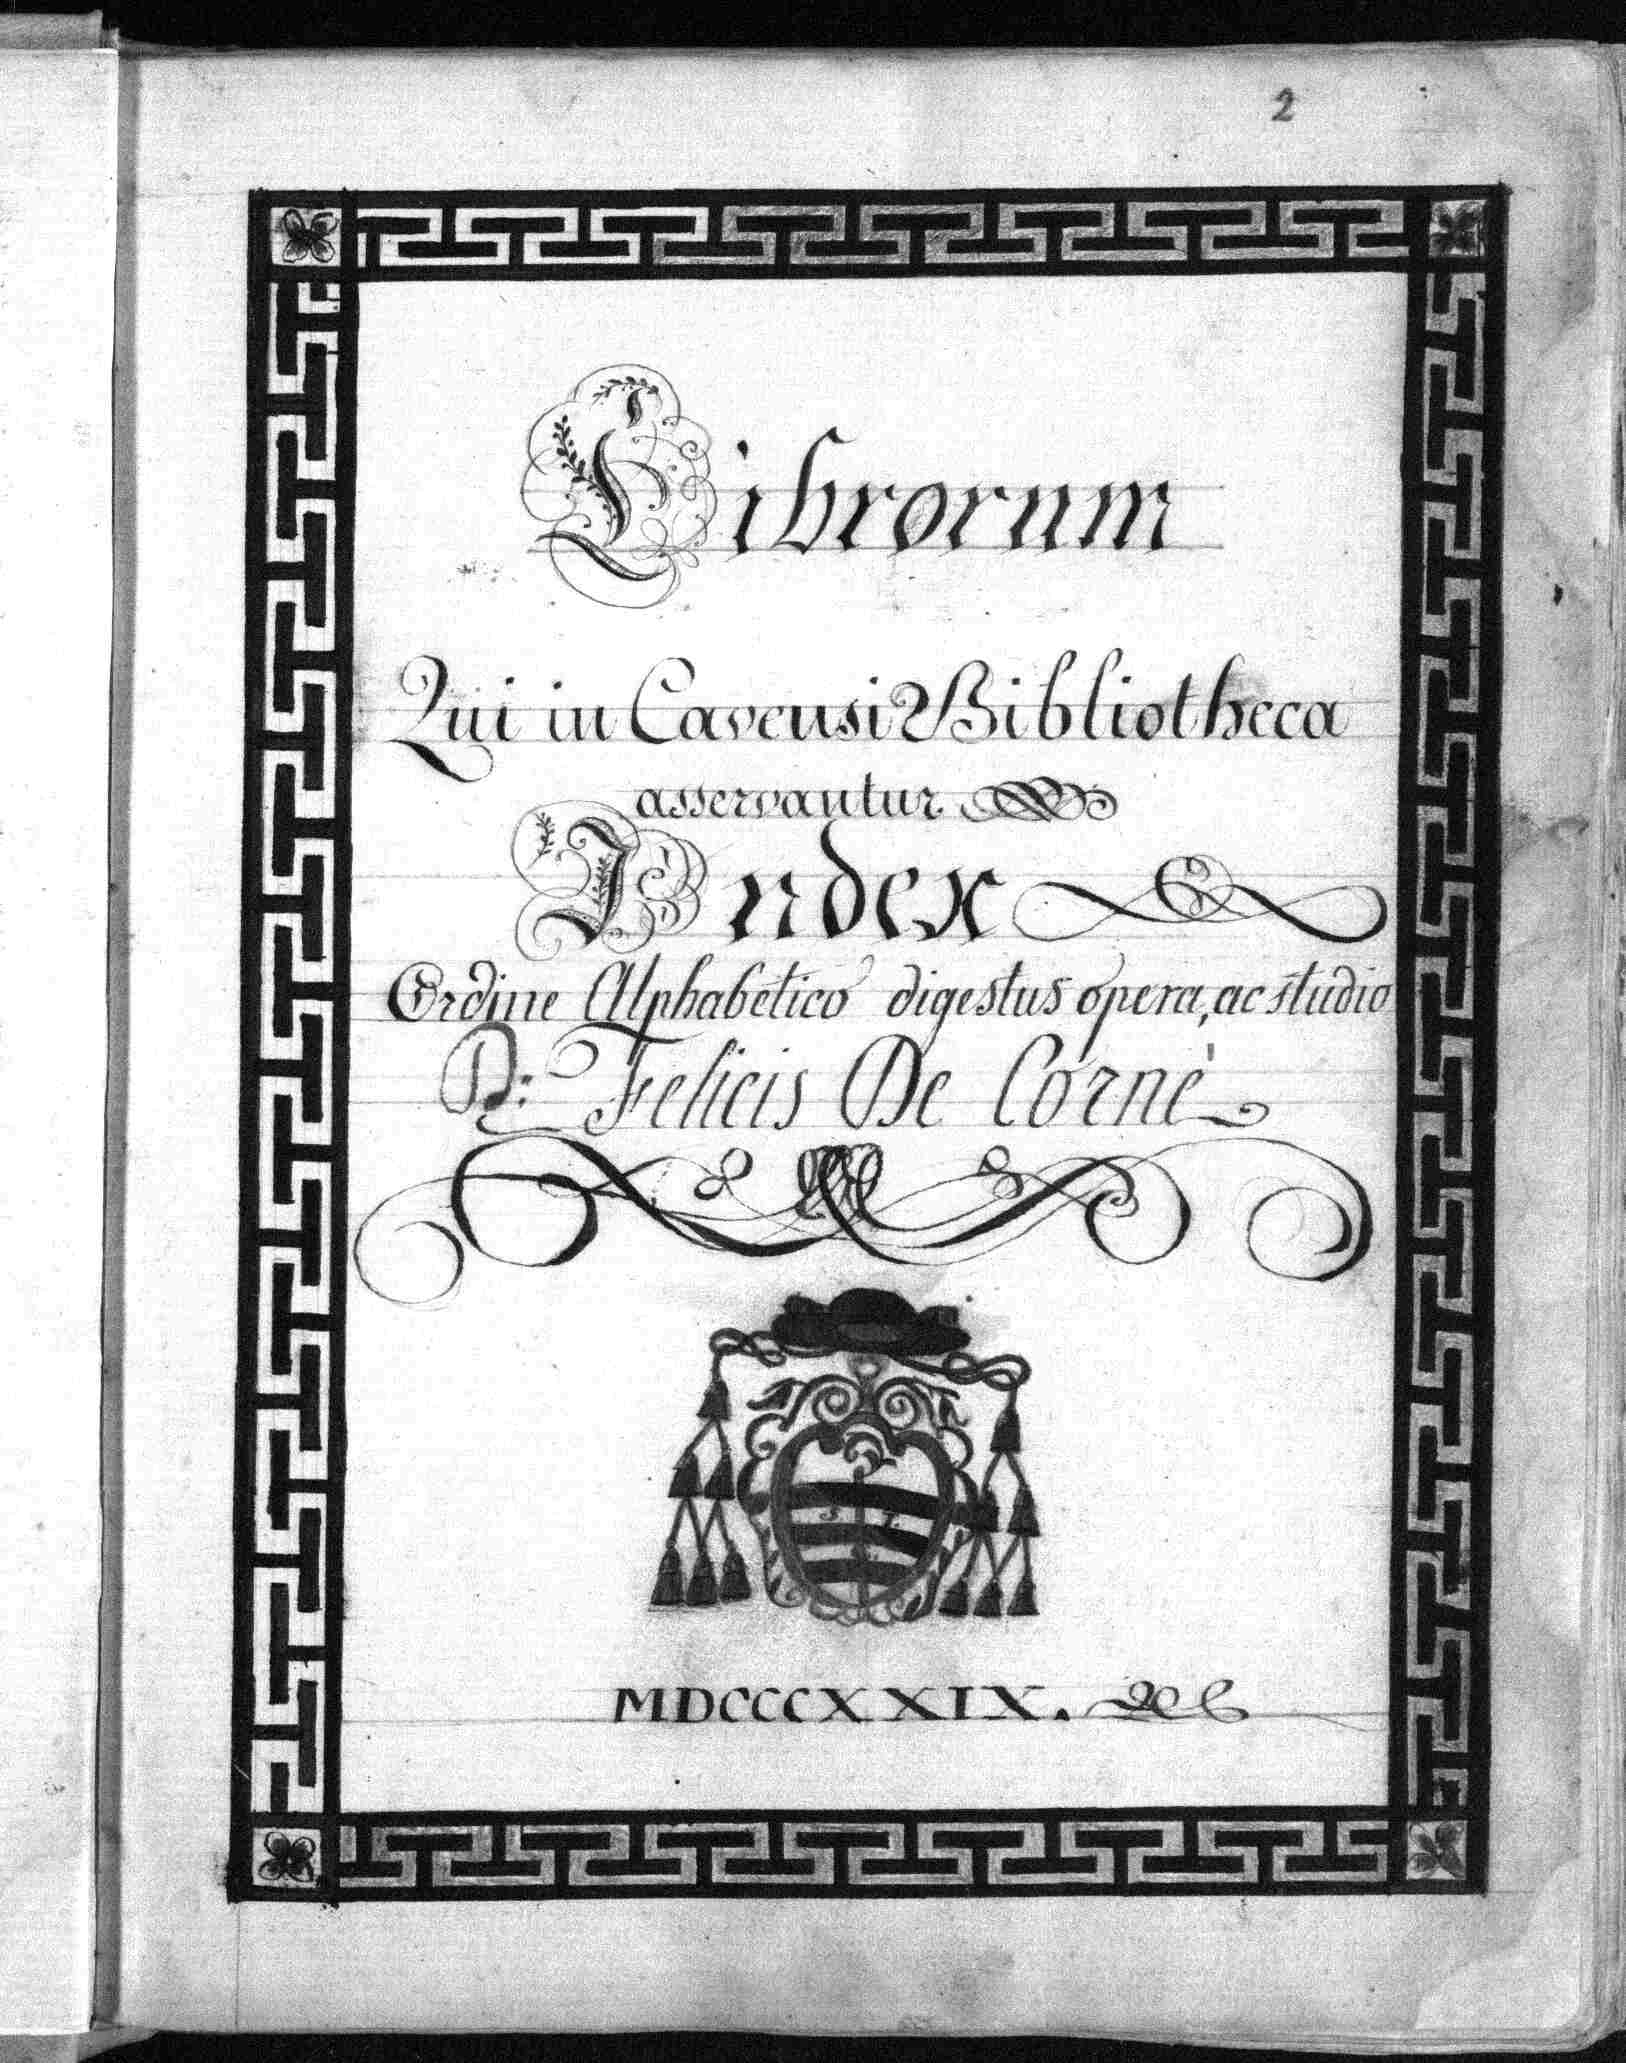 2
Librorum
Qui in Cavensi Bibliotheca
asservantur
Index
Ordine Alphabetico digestus opera, ac studio
D: Felicis De Cornè
MDCCCXXIX.